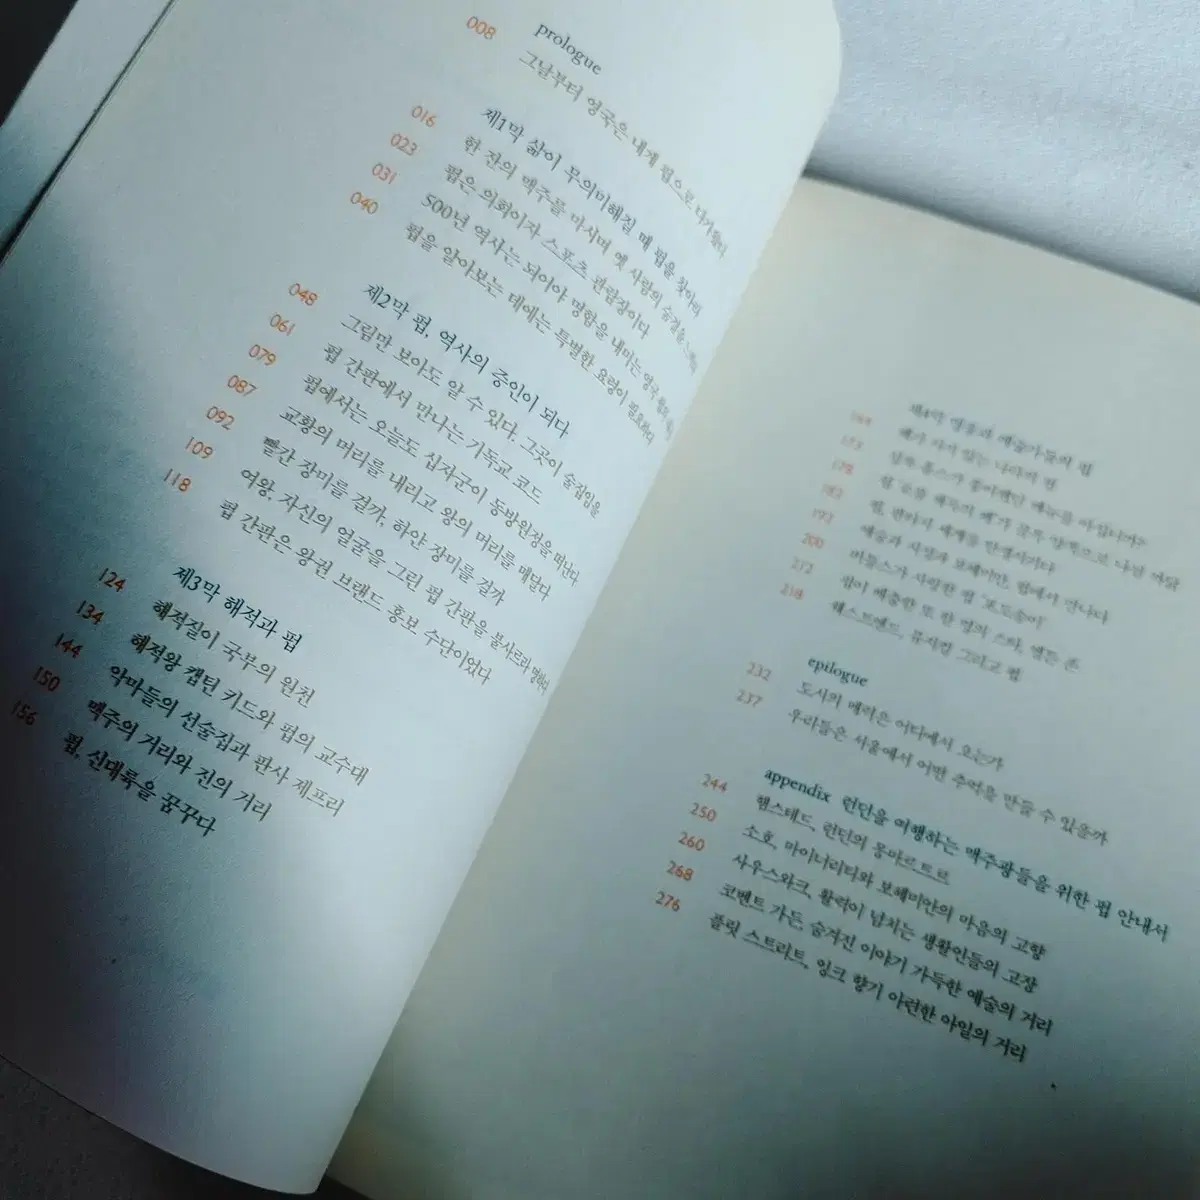 008 prologue
그날부터 영국은 내게 펍으로 다가왔다
제1막 삶이 무의미해질 때 펍을 찾아라
016 한 잔의 맥주를 마시며 옛 사람의 숨결을
023 펍은 의회이자 스포츠 관람장이다
031 500년 역사는 되어야 명함을 내미는 영국
040 펍을 알아보는 데에는 특별한 요령이 필요하다
제2막 펍, 역사의 증인이 되다
048 그림만 보아도 알 수 있다, 그곳이 술집임을
061 펍 간판에서 만나는 기독교 코드
079 펍에서는 오늘도 십자군이 동방원정을 떠난다
087 교황의 머리를 내리고 왕의 머리를 매달다
092 빨간 장미를 걸까, 하얀 장미를 걸까
109 여왕, 자신의 얼굴을 그린 펍 간판을 불사르라 명하다
118 펍 간판은 왕권 브랜드 홍보 수단이었다
제3막 해적과 펍
124 해적질이 국부의 원천
134 해적왕 캡틴 키드와 펍의 교수대
144 악마들의 선술집과 판사 제프리
150 맥주의 거리와 진의 거리
156 펍, 신대륙을 꿈꾸다
제4막 영웅과 예술가들의 펍
164
173 셜록 홈스가 좋아했던 메뉴를 아십니까?
178
183 펍, 한마저 세계를 탄생시키다
193 예술과 사상과 보헤미안, 펍에서 만나다
200 비틀스가 사랑한 펍 '포트숍이'
212 펍이 배출한 또 한 명의 스타, 엘튼 존
218 웨스트엔드, 뮤지컬 그리고 펍
epilogue
232 도시의 매력은 어디에서 오는가
237 우리들은 서울에서 어떤 추억을 만들 수 있을까
appendix 런던을 여행하는 맥주광들을 위한 펍 안내서
244 햄스테드, 런던의 몽마르트르
250 소호, 마이너리티와 보헤미안의 마음의 고향
260 사우스와크, 활력이 넘치는 생활인들의 고장
268 코벤트 가든, 숨겨진 이야기 가득한 예술의 거리
276 플릿 스트리트, 잉크 향기 아련한 아일의 거리